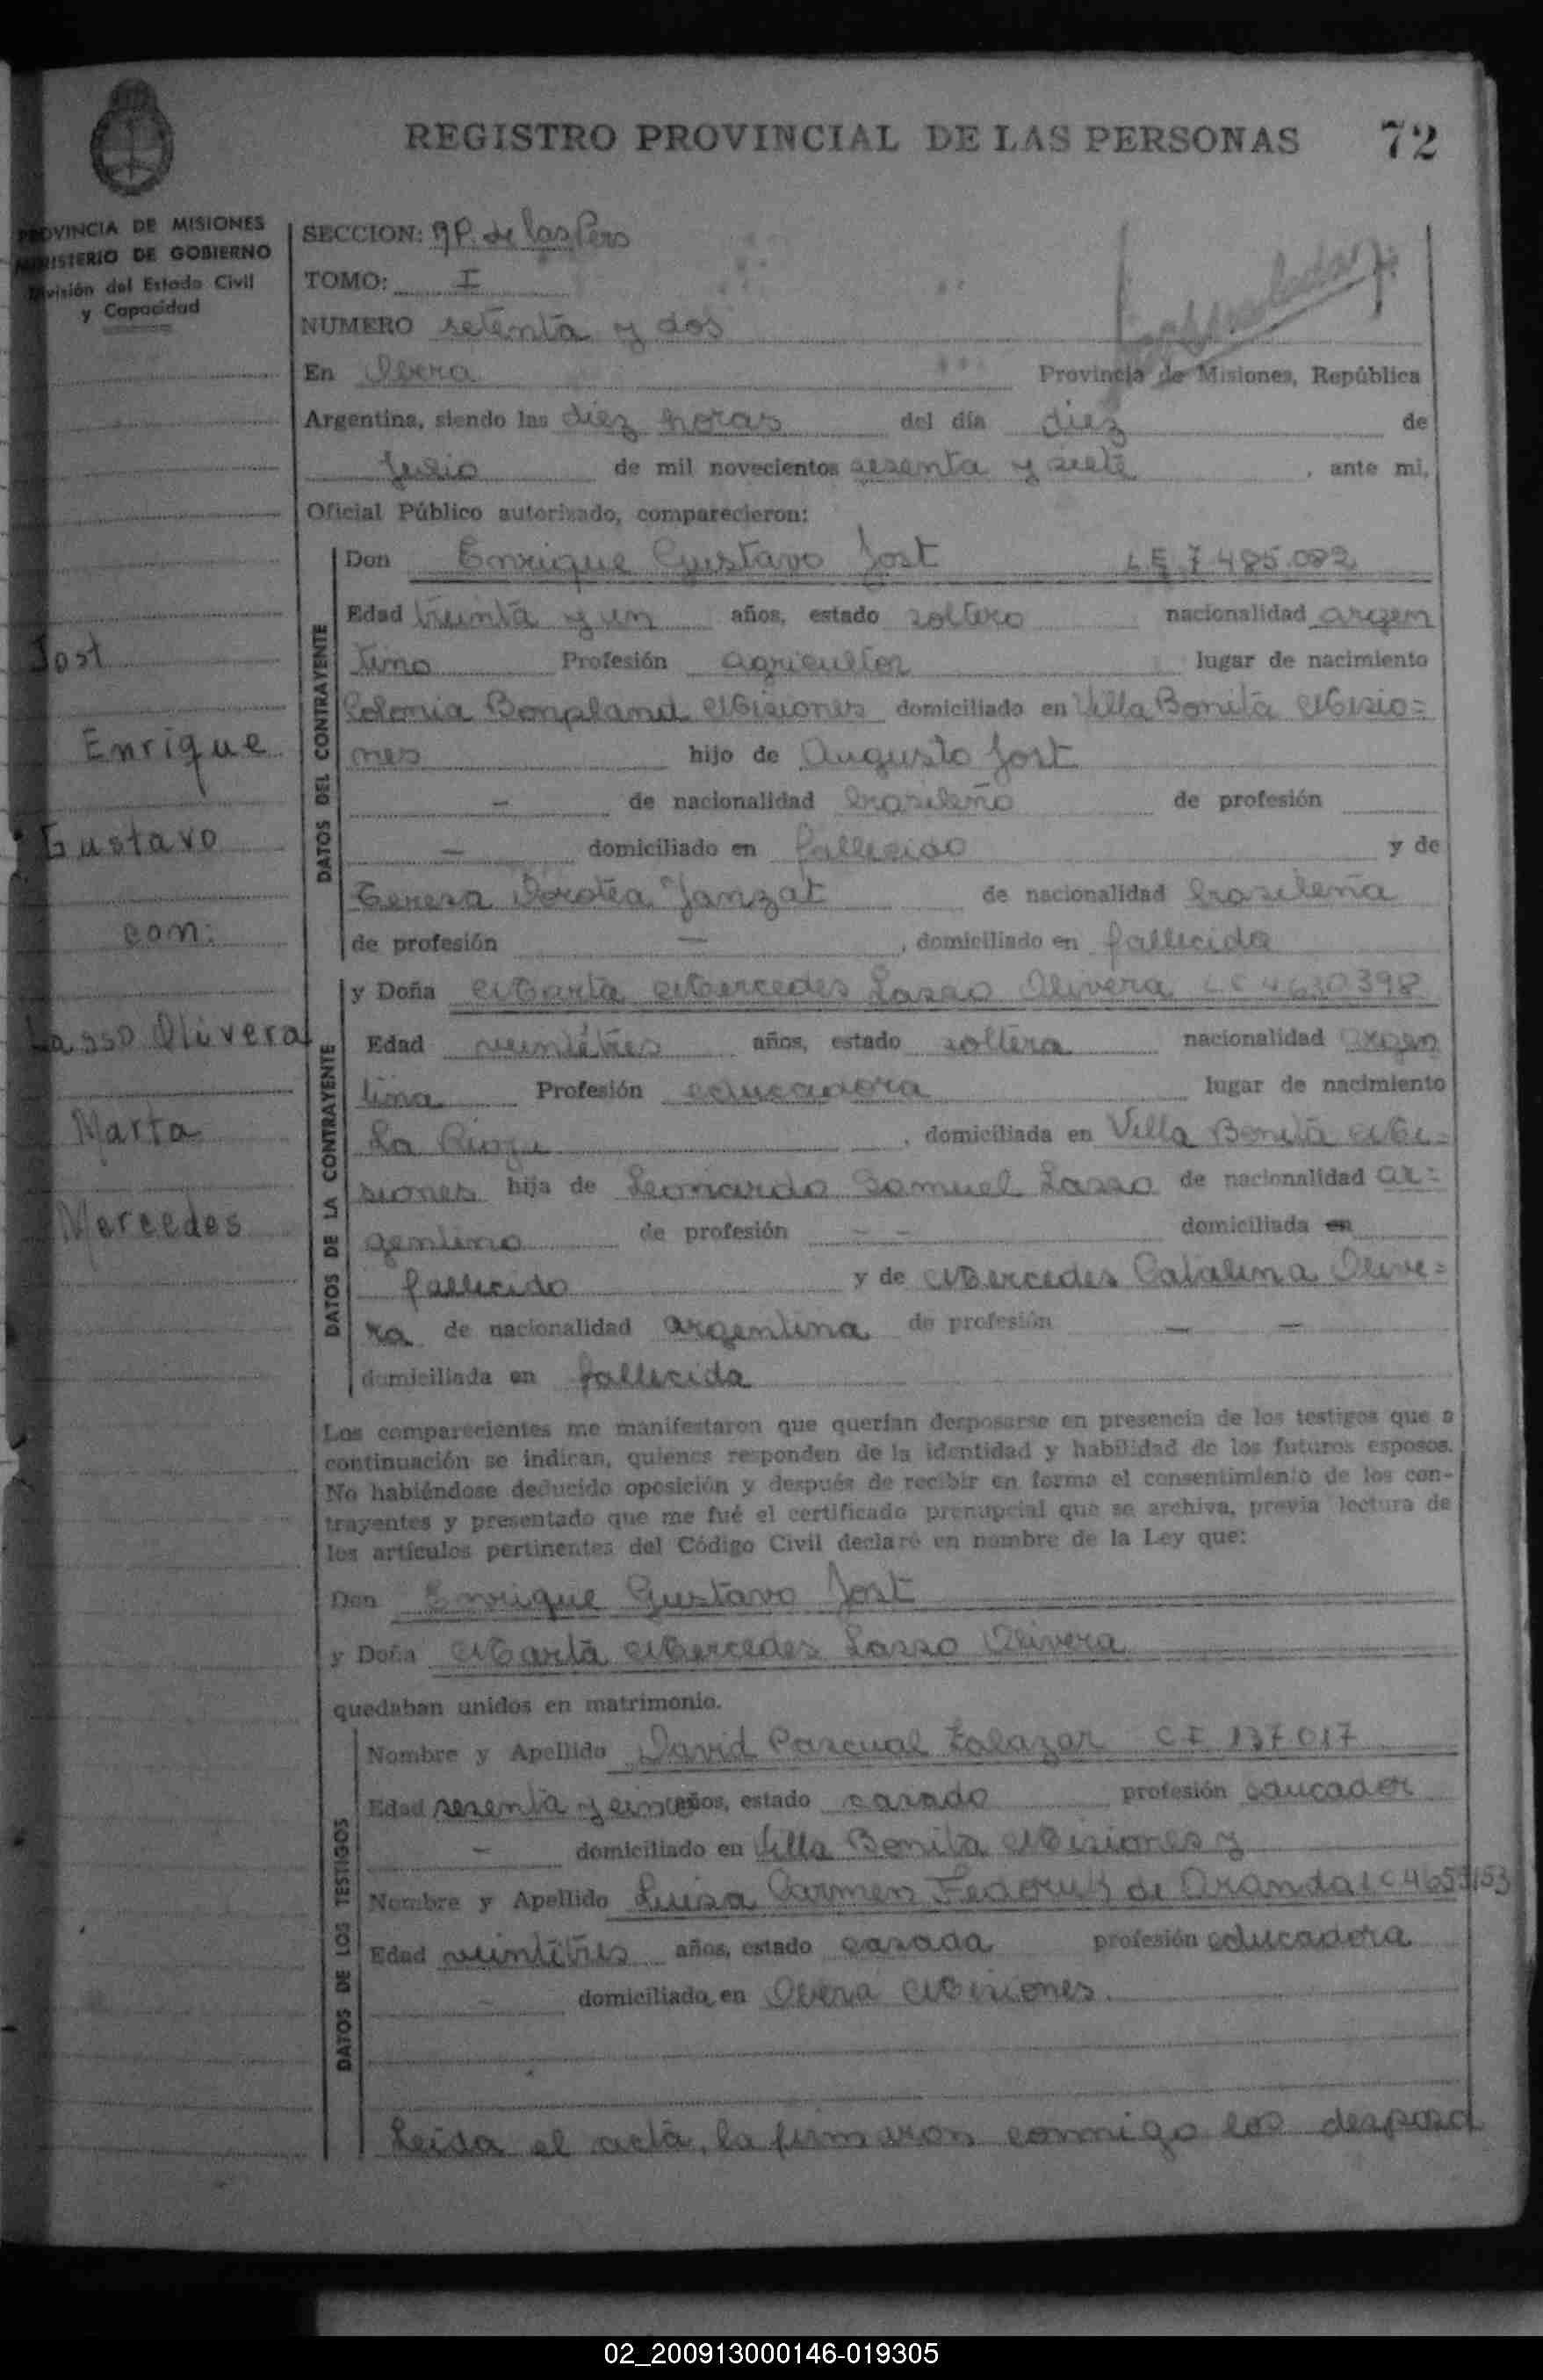 REGISTRO PROVINCIAL DE LAS PERSONAS 72
PROVINCIA DE MISIONES
MINISTERIO DE GOBIERNO
División del Estado Civil
y Capacidad
SECCION: RP. de las Pers
TOMO: I
NUMERO setenta y dos
En Obera Provincia de Misiones, República
Argentina, siendo las diez horas del día diez de
Julio de mil novecientos sesenta y siete, ante mi,
Oficial Público autorizado, comparecieron:
Jost
Enrique
Gustavo
con:
Lasso Olivera
Marta
Mercedes
DATOS DEL CONTRAYENTE
Don Enrique Gustavo Jost L.E 7.485.082
Edad treinta y un años, estado soltero nacionalidad argen
tino Profesión agricultor lugar de nacimiento
Colonia Bonpland Misiones domiciliado en Villa Bonita Misio=
nes hijo de Augusto Jost
— de nacionalidad brasileño de profesión
— domiciliado en fallecido y de
Teresa Dorotea Janzat de nacionalidad brasileña
de profesión —, domiciliado en fallecida
DATOS DE LA CONTRAYENTE
y Doña Marta Mercedes Lasso Olivera LC 4630398
Edad veintetres años, estado soltera nacionalidad argen
tina Profesión educadora lugar de nacimiento
La Rioja, domiciliada en Villa Bonita Mi=
siones hija de Leonardo Samuel Lasso de nacionalidad ar=
gentino de profesión — — domiciliada en
fallecido y de Mercedes Catalina Olive=
ra de nacionalidad argentina de profesión — —
domiciliada en fallecida
Los comparecientes me manifestaron que querían desposarse en presencia de los testigos que a
continuación se indican, quienes responden de la identidad y habilidad de los futuros esposos.
No habiéndose deducido oposición y después de recibir en forma el consentimiento de los con-
trayentes y presentado que me fué el certificado prenupcial que se archiva, previa lectura de
los artículos pertinentes del Código Civil declaré en nombre de la Ley que:
Don Enrique Gustavo Jost
y Doña Marta Mercedes Lasso Olivera
quedaban unidos en matrimonio.
DATOS DE LOS TESTIGOS
Nombre y Apellido David Pascual Zalazar C I 137.017
Edad sesenta y cinco años, estado casado profesión educador
— domiciliado en Villa Bonita Misiones y
Nombre y Apellido Luisa Carmen Fedoruk de Aranda LC 4655153
Edad veintetres años, estado casada profesión educadora
— domiciliada en Obera Misiones.
Leida el acta, la firmaron conmigo los desposa
02_200913000146-019305